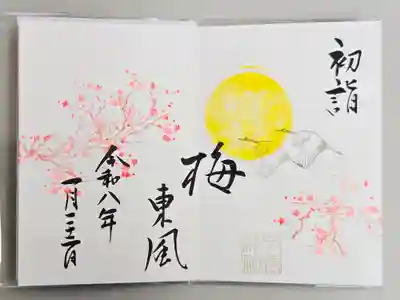 初詣
梅
東風
令和八年
一月